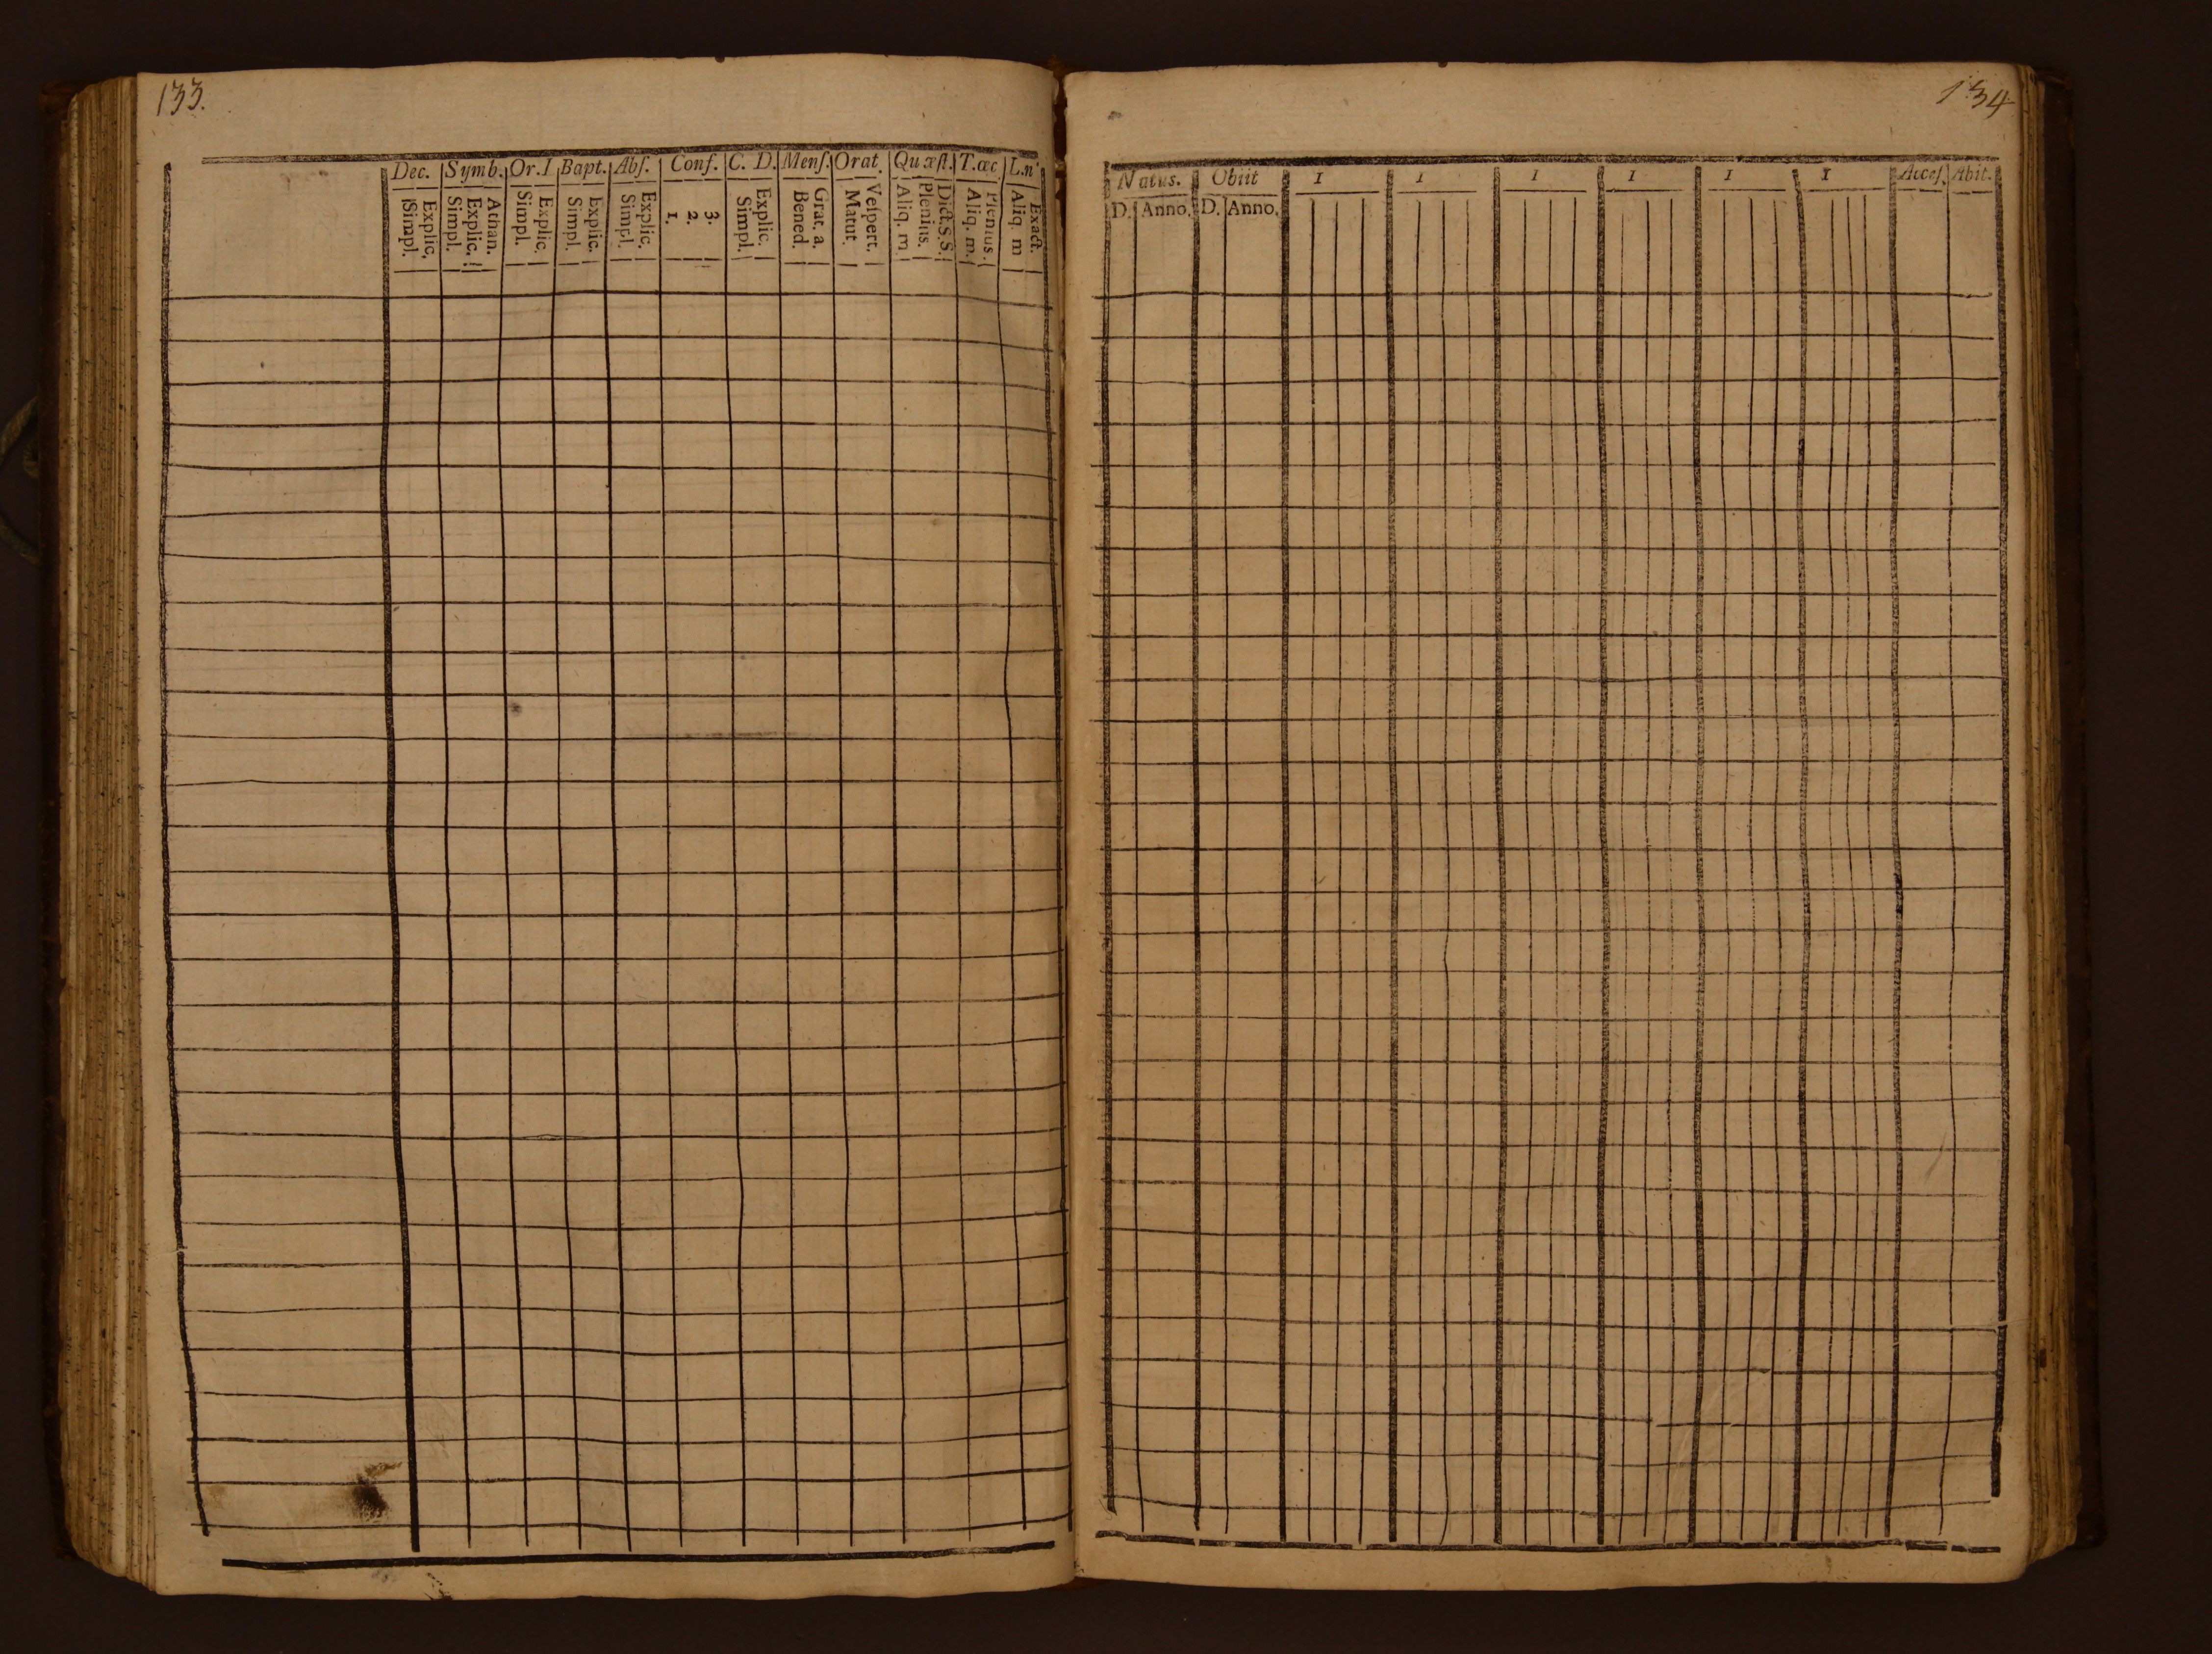 133.
Dec. Symb. Or. I Bapt. Abſ. Conf. C. D. Menſ. Orat. Quæſt. T. œc L. n
Explic. Simpl.
Athan. Explic. Simpl.
Explic. Simpl.
Explic. Simpl.
Explic. Simpl.
3. 2. 1.
Explic. Simpl.
Grat. a. Bened.
Veſpert. Matut.
Dict. S. S. Plenius. Aliq. m.
Plenius. Aliq. m.
Exact. Aliq. m
134
Natus. Obiit I I I I I I Acceſ. Abit.
D. Anno. D. Anno.